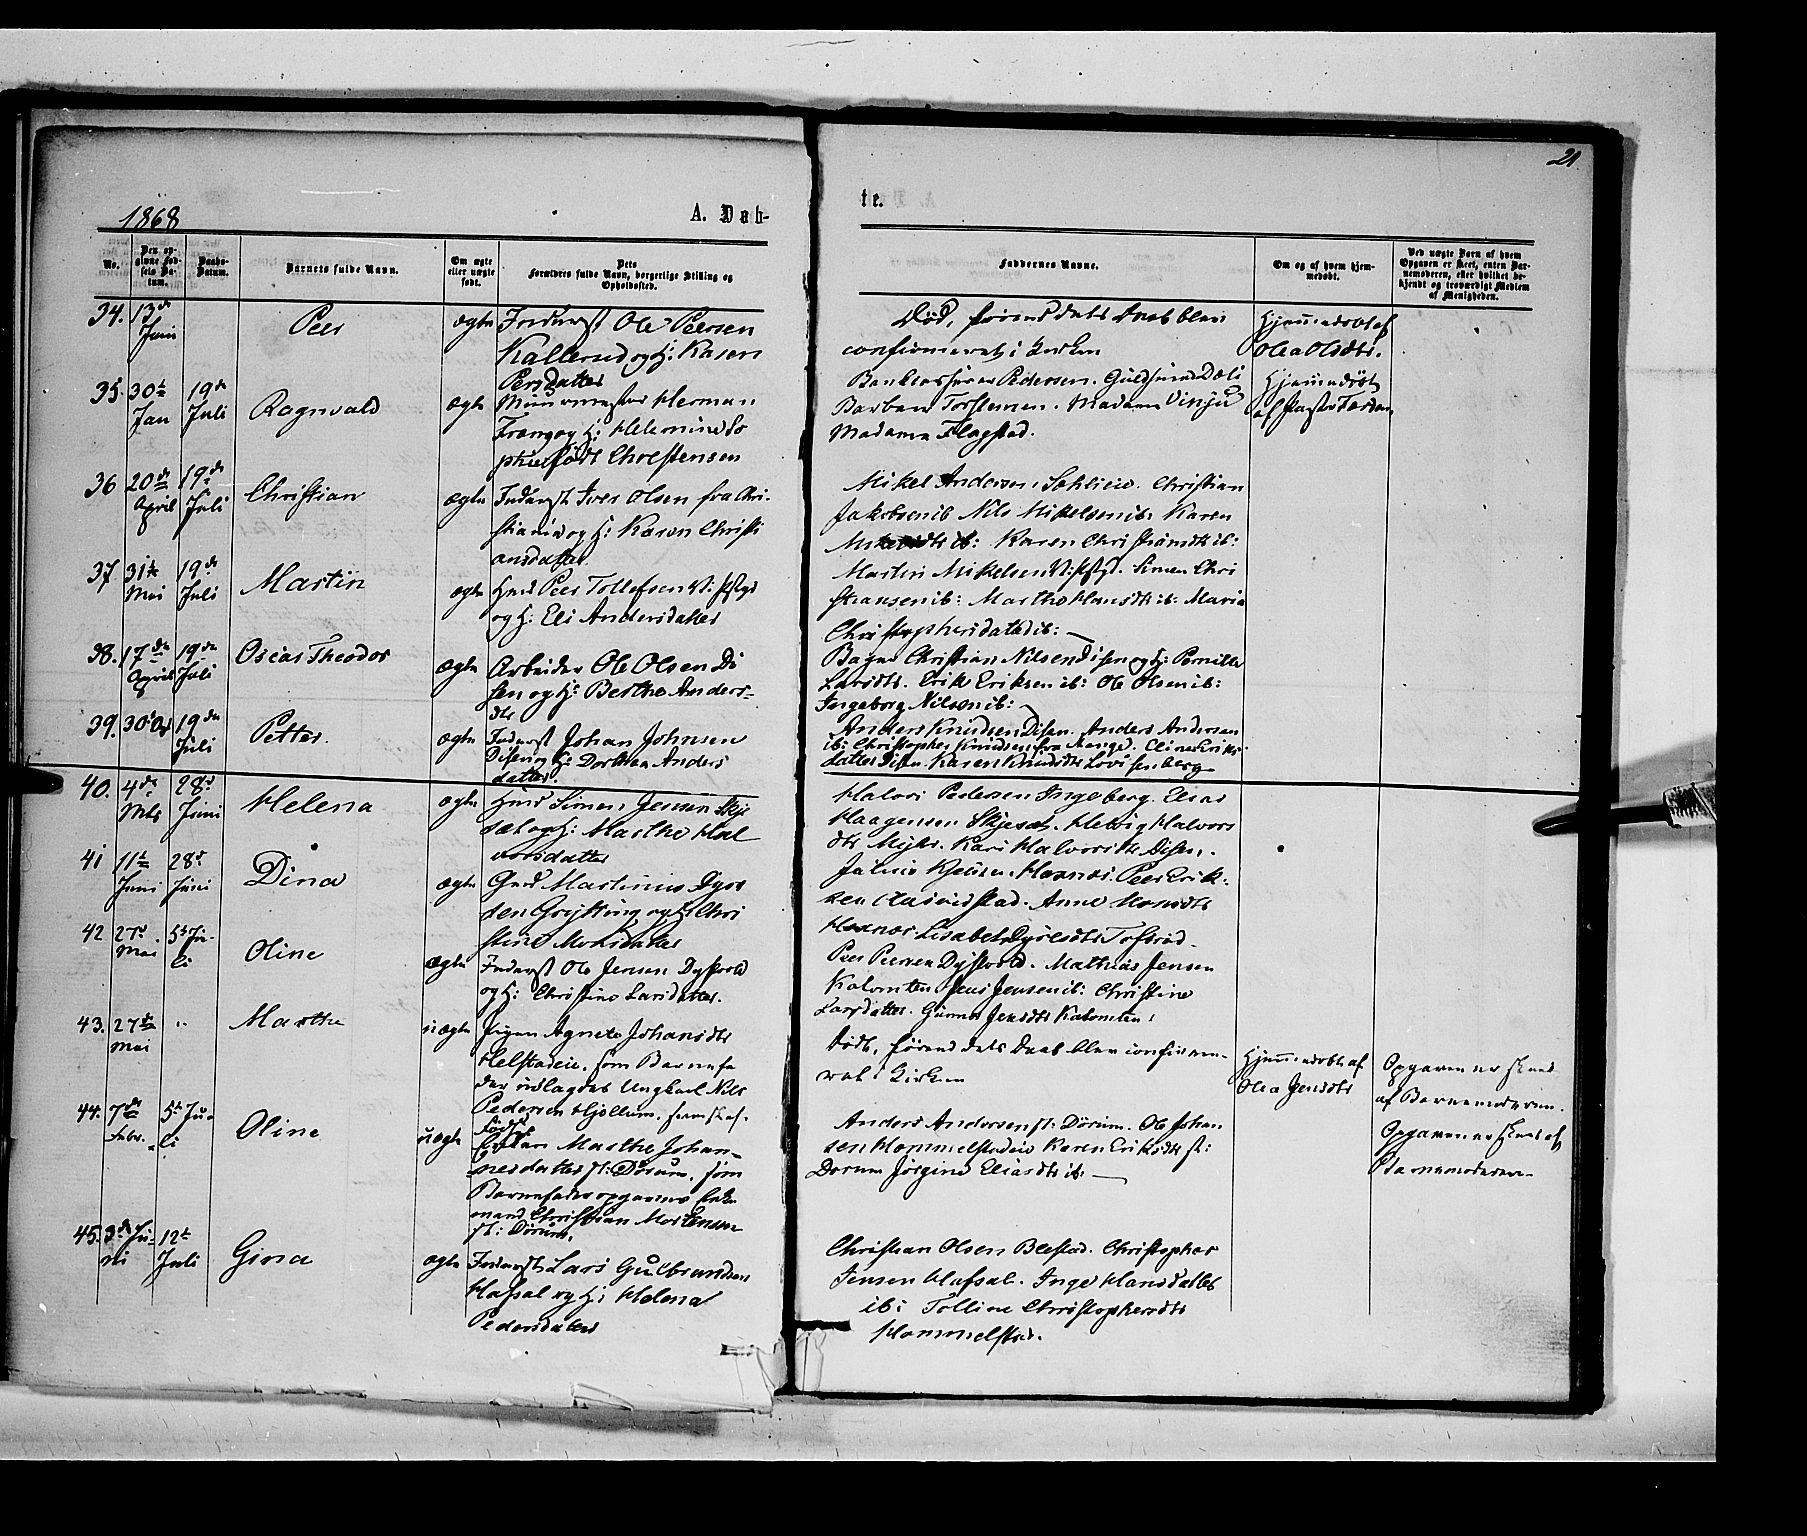 21
1868
A. Døb-
te.
No.
Den op-
givne Fød-
sels Da-
tum.
Daabs-
Datum.
Barnets fulde Navn.
Om ægte
eller uægte
født.
Dets
Forældres fulde Navn, borgerlige Stilling og
Opholdssted.
Faddernes Navne.
Om og af hvem hjem-
medøbt.
Ved uægte Barn af hvem
Opgaven er skeet, enten Bar-
nemoderen, eller hvilket be-
kjendt og troværdigt Medlem
af Menigheden.
34. 13de
Juni
Peer
ægte
Inderst Ole Peersen
Kallerud og H: Karen
Persdatter
Død, førend dets Daab blev
confirmeret i Kirken
Hjemmedøbt af
Olea Olsdtr.
35. 30te
Jan
19de
Juli
Ragnvald
ægte
Muurmester Herman
Frang og H: Helemine So
phie født Chrestensen
Pedersen. Guldsmed Dæli
Barbara Torstensen. Madame Vinju
Madame Flagstad.
Hjemmedøbt
af Pastor
36 20de
April
19de
Juli
Christian
ægte
Inderst Iver Olsen fra Chri-
stiania og H: Karen Christi
ansdatter
Mikel Andersen Christian
Jakobsen ib Nils Mikelsen ib: Karen
ib: Karen Christiansdtr ib:
37 31te
Mai
19de
Juli
Martin
ægte
Husm Peer Tollefsen
og H: Eli Andersdatter
Martin Mikelsen Simen Chri
stiansen ib: Marthe Hansdtr ib: Maria
Christophersdatter ib:
38. 17de
April
19de
Juli
Oscar Theodor
ægte
Arbeider Ole Olsen Di
sen og H: Berthe Anders-
dtr
Bager Christian Nilsen Disen og H: Pernille
Larsdtr. Erik Eriksen ib: Ole Olsen ib:
Ingeborg Nilsen ib:
39.
19de
Juli
Petter.
ægte
Inderst Johan Johnsen
Disen og H: Dorthea Anders
datter.
Anders Knudsen Disen. Anders Andersen
ib: Christopher Knudsen fra Eline Eriks
datter Disen. Karen Knudsdtr Lovisenberg
40. 4de
Mts
28de
Juni
Helena
ægte
Husm Simen Jensen Skje
sæt og H: Marthe Hal
vorsdatter
Halvor Pedersen Ingeberg. Elias
Haagensen Skjesæt. Helvig Halvors
dtr Kari Halvorsdtr Disen.
41 11te
Juni
28de
Juni
Dina
ægte
Grd Martinus Dyre
sen Grytting og H: Chri
stine Monsdatter
Julius Hornæs. Peer Erik-
sen Anne Monsdtr
Hornæs Lisabet Dyresdtr Tofsrud.
42 27de
Mai
5te Ju-
li
Oline
ægte
Inderst Ole Jensen Dystvold
og H: Christine Larsdatter.
Peer Peersen Dystvold. Mathias Jensen
Kalomten Jens Jensen ib: Christine
Larsdatter. Gunnor Jensdtr Kalomten.
43. 27de
Mai
"
Marthe
uægte
Pigen Agnete Johansdtr
Helstadeie, som Barnefa
der udlagdes Ungkarl Nils
Pedersen Hjellum,
Født, førend dets Daab blev confirme-
ret i Kirken
Hjemmedøbt af
Olea Jensdtr
Opgaven er skeet
af Barnemoderen.
44. 7de
Febr.
5te Ju-
li
Oline
uægte
Enken Marthe Johan-
nesdatter st: Dørum, som
Barnefader opgaves Enke
mand Christian Mortensen
st: Dørum.
Anders Andersen st: Dørum. Ole Johan
sen Hommelstadeie Karen Eriksdtr st:
Dørum Jørgine Eliasdtr ib:
Opgaven er skeet af
Barnemoderen
45. 3de Ju-
ni
12te
Juli
Gina
ægte
Inderst Lars Gulbrandsen
Hafsal og H: Helena
Pedersdatter
Christian Olsen Blestad. Christopher
Jensen Hafsal. Inge Hansdatter
ib: Tolline Christophersdtr
Hommelstad.